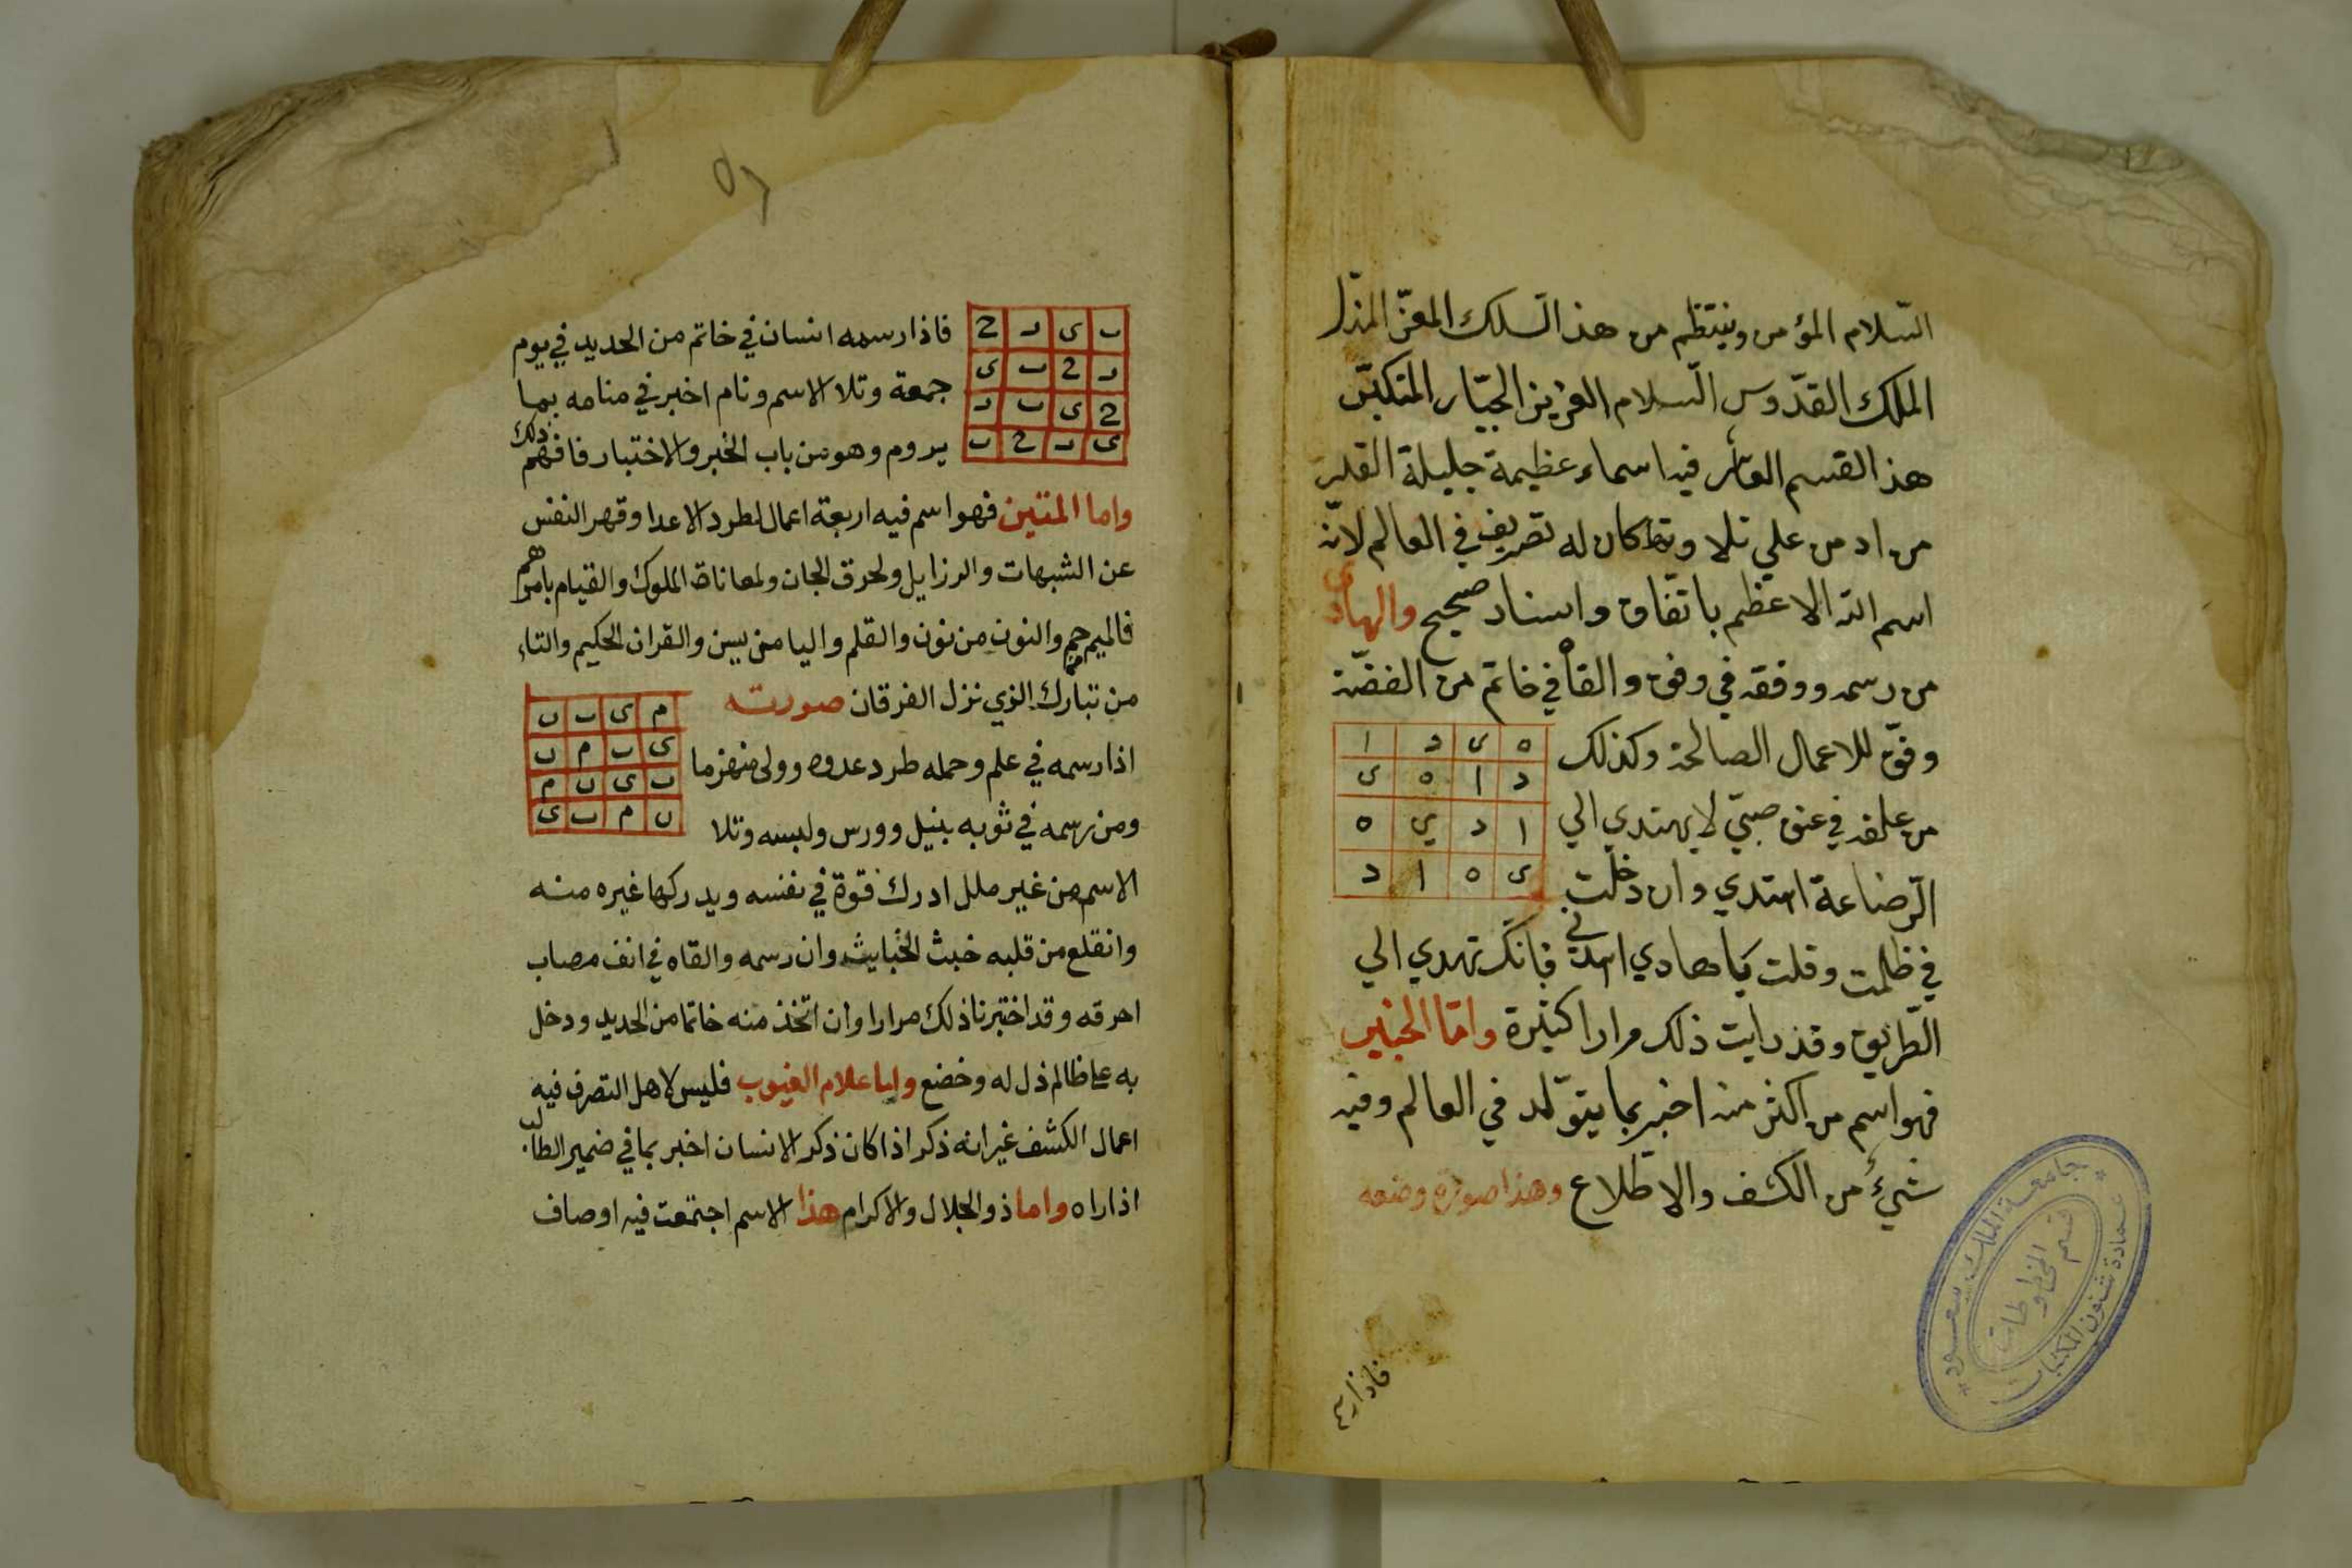 السّلام المؤمن وينتظم من هذ السّلك المعزّ المذلّ
الملك القدّوس السّلام العزيز الجبّار المتكبّر
هذ القسم العاشر فيه اسماء عظيمة جليلة القدر
من ادمن علي تلاوتها كان له تصريف في العالم لانّه
اسم الله الاعظم باتّفاق واسناد صحيح والهادي
من رسمه ووفقه في وفق والقاه في خاتم من الفضّة
وفّق للاعمال الصالحة وكذلك
ه ى د ا
د ا ه ى
ا د ي ه
ى ه ا د
من علقه في عنق صبيّ لا يهتدي الي
الرّضاعة اهتدي وان دخلت
في ظلمت وقلت يا هادي اهدني فانّك تهدي الي
الطّريق وقد رايت ذلك مرارا كثيرة وامّا الخبير
فهو اسم من اكثر منه اخبر بما يتولّد في العالم وفيه
شيءٌ من الكشف والاطّلاع وهذا صورة وضعه
فاذا رسمه
جامعة الملك سعود
عمادة شئون المكتبات
قسم المخطوطات
ٮ ى ر ح
ر ح ٮ ى
ح ى ٮ ر
ى ر ح ٮ
فاذا رسمه انسان في خاتم من الحديد في يوم
جمعة وتلا الاسم ونام اخبر في منامه بما
يروم وهو من باب الخبر والاختبار فافهم ذلك
واما المتين فهو اسم فيه اربعة اعمال لطرد الاعدا وقهر النفس
عن الشبهات والرزايل ولحرق الجان ولمعاناة الملوك والقيام بامرهم
فالميم حم والنون من نون والقلم واليا من يسن والقران الحكيم والتاء
من تبارك الذي نزل الفرقان صورته
م ى ٮ ں
ى ٮ م ں
ٮ ى ں م
ں م ٮ ى
اذا رسمه في علم وحمله طرد عدوه وولى منهزما
ومن رسمه في ثوبه بنيل وورس ولبسه وتلا
الاسم من غير ملل ادرك قوة في نفسه ويدركها غيره منه
وانقلع من قلبه خبث الخبايث وان رسمه والقاه في انف مصاب
احرقه وقد اختبرنا ذلك مرارا وان اتخذ منه خاتما من الحديد ودخل
به على ظالم ذل له وخضع واما علام الغيوب فليس لاهل التصرف فيه
اعمال الكشف غير انه ذكر اذا كان ذكر الانسان اخبر بما في ضمير الطالب
اذا راه واما ذو الجلال والاكرام هذا الاسم اجتمعت فيه اوصاف